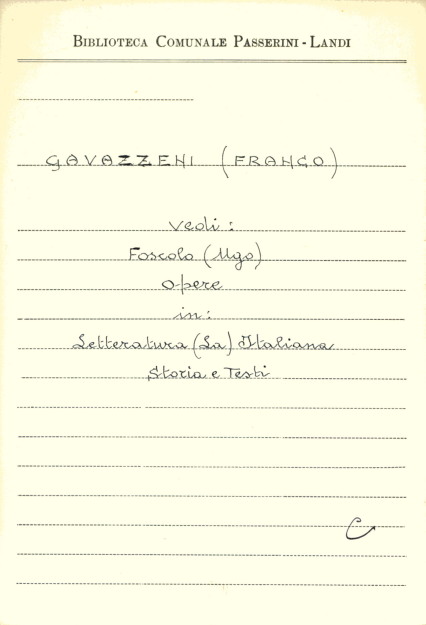 BIBLIOTECA COMUNALE PASSERINI - LANDI
GAVAZZENI (FRANCO)
vedi:
Foscolo (Ugo)
Opere
in:
Letteratura (La) Italiana
Storia e Testi
C